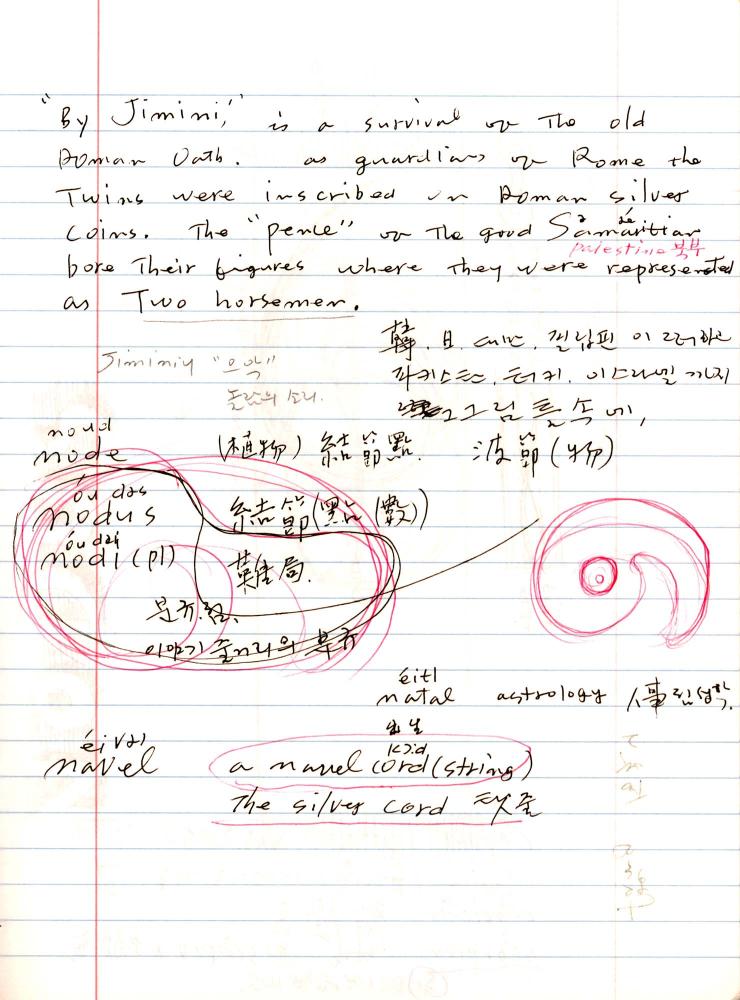 "By Jimini," is a survival of the old
Roman Oath. as guardians of Rome the
Twins were inscribed on Roman silver
coins. The "pence" of the good Samaritian
palestine 북부
bore their figures where they were represented
as Two horsemen.
韓. 日. 대만. 필립핀 이 그러하고
Jiminiy "으악"
놀람의 소리.
파키스탄. 터키. 이스라엘 까지
그그림들 속에,
noud
node (植物) 結節點. 波節(物)
óu dəs
nodus 結節(點(數)
óu dai
nodi (pl) 難局.
분규.
이야기 줄거리의 분규
éitl
natal astrology
出生
éivəl
navel a navel cord (string)
The silver cord 탯줄